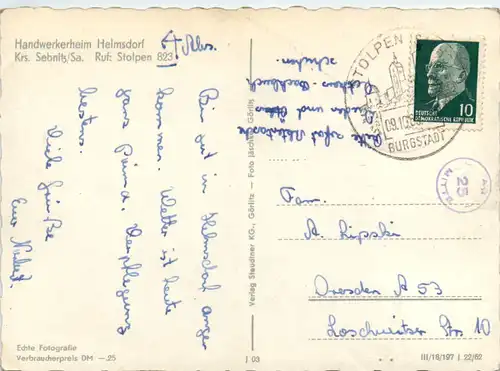 Handwerkerheim Helmsdorf
Krs. Sebnitz/Sa. Ruf: Stolpen 823
Abs.
Bin gut in Helmsdorf ange
kommen. Wetter ist heute
ganz Prima. Verpflegung
bestens.
Viele Grüße
Euer
Bitte sofort
und
schicken.
Verlag Steudtner KG., Görlitz – Foto Jäschke, Görlitz
STOLPEN (S
09.10.
BURGSTADT
DEUTSCHE
DEMOKRATISCHE REPUBLIK
10
25
MITTE
Fam.
A. Lipski
Dresden A 53
Loschwitzer Str 10
Echte Fotografie
Verbraucherpreis DM –.25
J 03
III/18/197 J 22/62